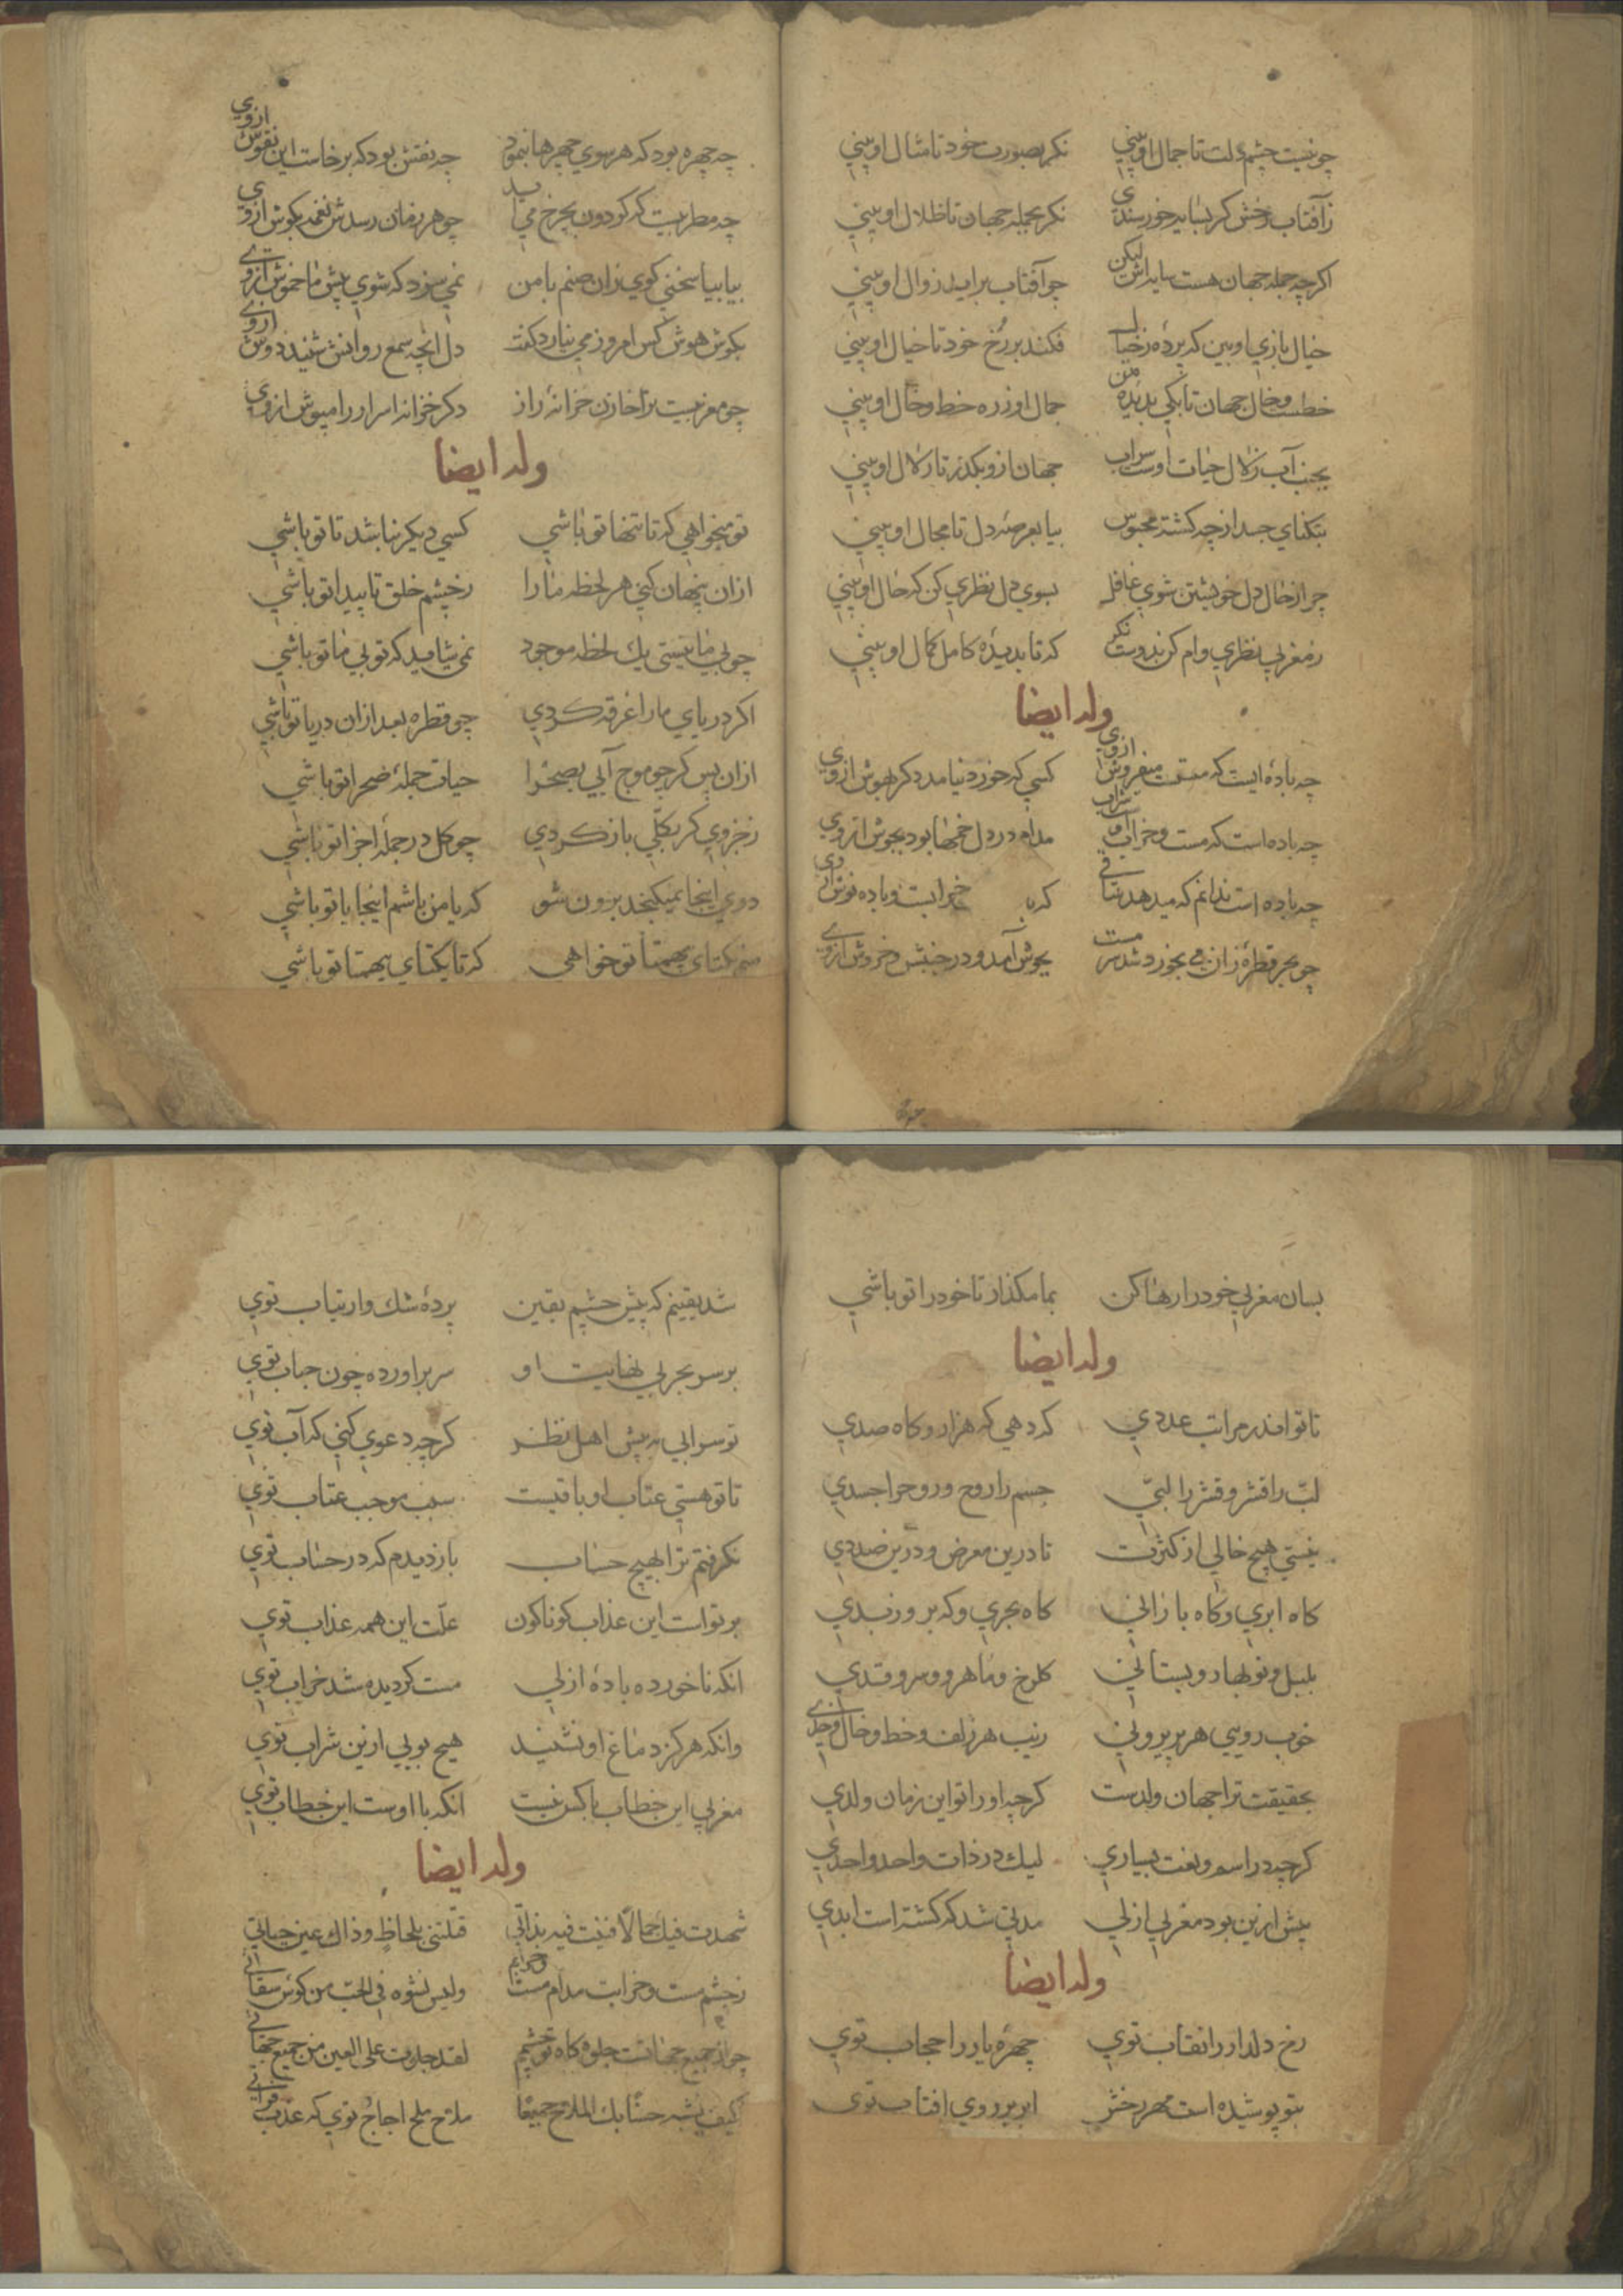 چو نیست چشم دلت تا جمال او بینی نکر بصورت خود تا مثال او بینی
ز آفتاب رخش کر نشاید خورسندی نکر بجمله جهان تا ظلال او بینی
اکرچه جمله جهان هست سایه اش لیکن چو آفتاب براید زوال او بینی
خیال بازی او بین که پرده ز خیال فکند بر رخ خود تا خیال او بینی
خطست و خال جهان تا بکی بدیده من جمال او ز ره خط و خال او بینی
بجنب آب زلال حیات اوست سراب جهان ازو بکذر تا زلال او بینی
بتنکنای جسد از چه کشته محبوس بیا بعرصه دل تا مجال او بینی
چرا ز حال دل خویشتن شوی غافل بسوی دل نظری کن که حال او بینی
ز مغربی نظری وام کن بدوست نکر که تا بدیده کامل کمال او بینی
وله ایضا
چه باده ایست که مست میفروش ازوی کسی که خورد نیامد دکر بهوش ازوی
چه باده است که مست و خراب شراب مدام در دل خمها بود بجوش ازوی
چه باده است ندانم که میدهد ساقی که خرابست و باده نوش ازوی
چو بحر قطره زان می بخورد شد سرمست بجوش آمد و در جنبش و خروش ازوی
چه چهره بود که هر سوی چهرها بنمود چه نقش بود که برخاست این نقوش ازوی
چه مطربیست که کردون بچرخ می اید چو هر زمان رسدش نغمه بکوش ازوی
بیا بیا سخنی کوی زان صنم با من نمی سزد که شوی پیش ما خموش ازوی
بکوش هوش کس امروز می نیارد کفت دل انچه سمع روانش شنید دوش ازوی
چو مغربیست برا خازن خزانه راز دکر خزانه اسرار را مپوش ازوی
وله ایضا
تو میخواهی که تا تنها تو باشی کسی دیکر نباشد تا تو باشی
ازان پنهان کنی هر لحظه ما را ز چشم خلق تا پیدا تو باشی
چو بی ما نیستی یک لحظه موجود نمی شاید که تو بی ما تو باشی
اکر دریای ما را غرقه کردی چو قطره بعد ازان دریا تو باشی
ازان پس کر چو موج آیی بصحرا حیات جمله صحرا تو باشی
ز جزوی کر بکلی باز کردی چو کل در جمله اجزا تو باشی
دوی اینجا نمیکنجد برون شو که یا من باشم اینجا یا تو باشی
منم یکتای بیهمتا تو خواهی که تا یکتای بیهمتا تو باشی
بسان مغربی خود را رها کن بما مکذار تا خود را تو باشی
وله ایضا
تا تو اندر مراتب عددی که دهی که هزار و کاه صدی
لب را قشر و قشر را لبی جسم را روح و روح را جسدی
نیستی هیچ خالی از کثرت تا درین معرض و درین صددی
کاه ابری و کاه بارانی کاه بحری و که بر و زبدی
بلبل و نوبهار و بستانی کلرخ و ماهرو و سرو قدی
خوب رویی هر پریرویی زیب هر زلف و خط و خال و خدی
بحقیقت ترا جهان ولدست کرچه او را تو این زمان ولدی
کرچه در اسم و نعت بسیاری لیک در ذات واحد و احدی
پیش ازین بود مغربی ازلی مدتی شد که کشته است ابدی
وله ایضا
رخ دلدار را نقاب توی چهره یار را حجاب توی
بتو پوشیده است مهر رخش ابر بر روی افتاب توی
شد یقینم که پیش چشم یقین پرده شک و ارتیاب توی
بر سر بحر بی نهایت او سر براورده چون حباب توی
تو سرابی به پیش اهل نظر کرچه دعوی کنی که آب توی
تا تو هستی عتاب او باقیست سبب موجب عتاب توی
نکرفتم ترا بهیچ حساب باز دیدم که در حساب توی
بر تو است این عذاب کوناکون علت این همه عذاب توی
انکه ناخورده باده ازلی مست کردیده شد خراب توی
وانکه هرکز دماغ او نشنید هیچ بویی ازین شراب توی
مغربی این خطاب با کس نیست انکه با اوست این خطاب توی
وله ایضا
شهدت فیک جمالا فنیت فیه بذاتی قتلتنی بلحاظ و ذاک عین حیاتی
ز چشم مست و خرابت مدام مست و خرابم ولیس نشوه فی الحب من کوس سقاتی
چو از جمیع جهاتت جلوه کاه تو چشمم لقد جلوت علی العین من جمیع جهاتی
کیف یشبه حسنا بک الملاح جمیعا ملاح ملح اجاج توی که عذب فراتی